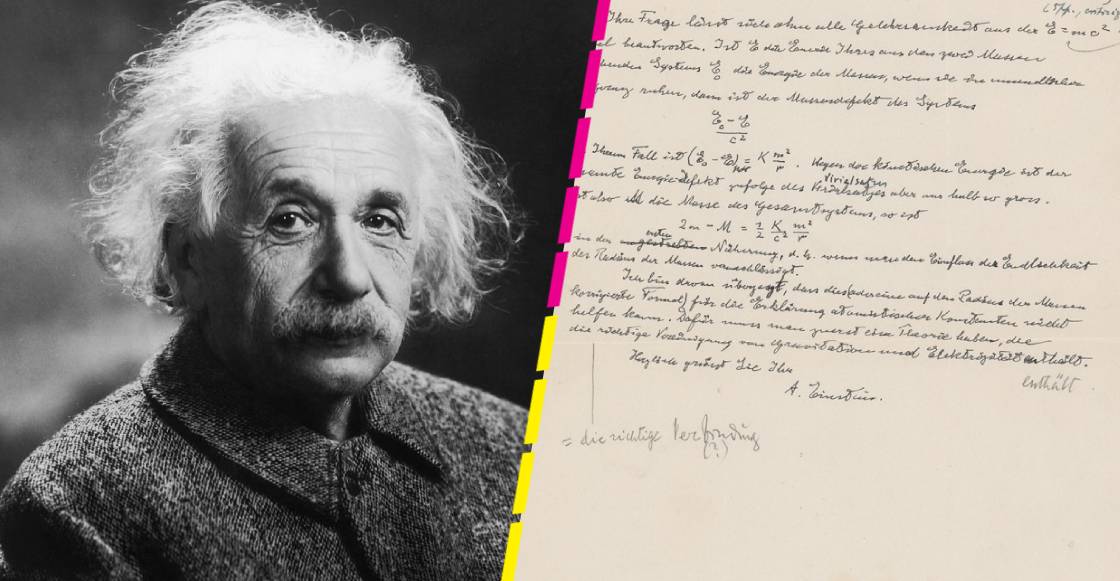 (Stff.,
Ihre Frage lässt sich ohne alle Gelehrsamkeit aus der E = mc²
el beantworten. Ist E die Energie Ihres aus den zwei Massen
henden Systems E₀ die Energie der Massen, wenn sie in unendlicher
ruhen, dann ist der Massendefekt des Systems
E₀ - E
c²
Ihrem Fall ist (E₀ - E) = K m²/r . Wegen der kinetischen Energie ist der
Virialsatzes
Energie-Defekt zufolge des aber nur halb so gross.
st also M die Masse des Gesamtsystems, so ist
2m - M = 1/2 K/c² m²/r
ersten
in der Näherung, d. h. wenn man den Einfluss der Endlichkeit
des Radius der Massen vernachlässigt.
Ich bin davon überzeugt, dass diese auf den Radius der Massen
korrigierte Formel für die Erklärung atomistischer Konstanten nicht
helfen kann. Dafür muss man zuerst eine Theorie haben, die
die richtige Vereinigung von Gravitation und Elektrizität enthält.
Herzlich grüsst Sie Ihr
enthält
A. Einstein.
= die richtige Verbindung
(?)